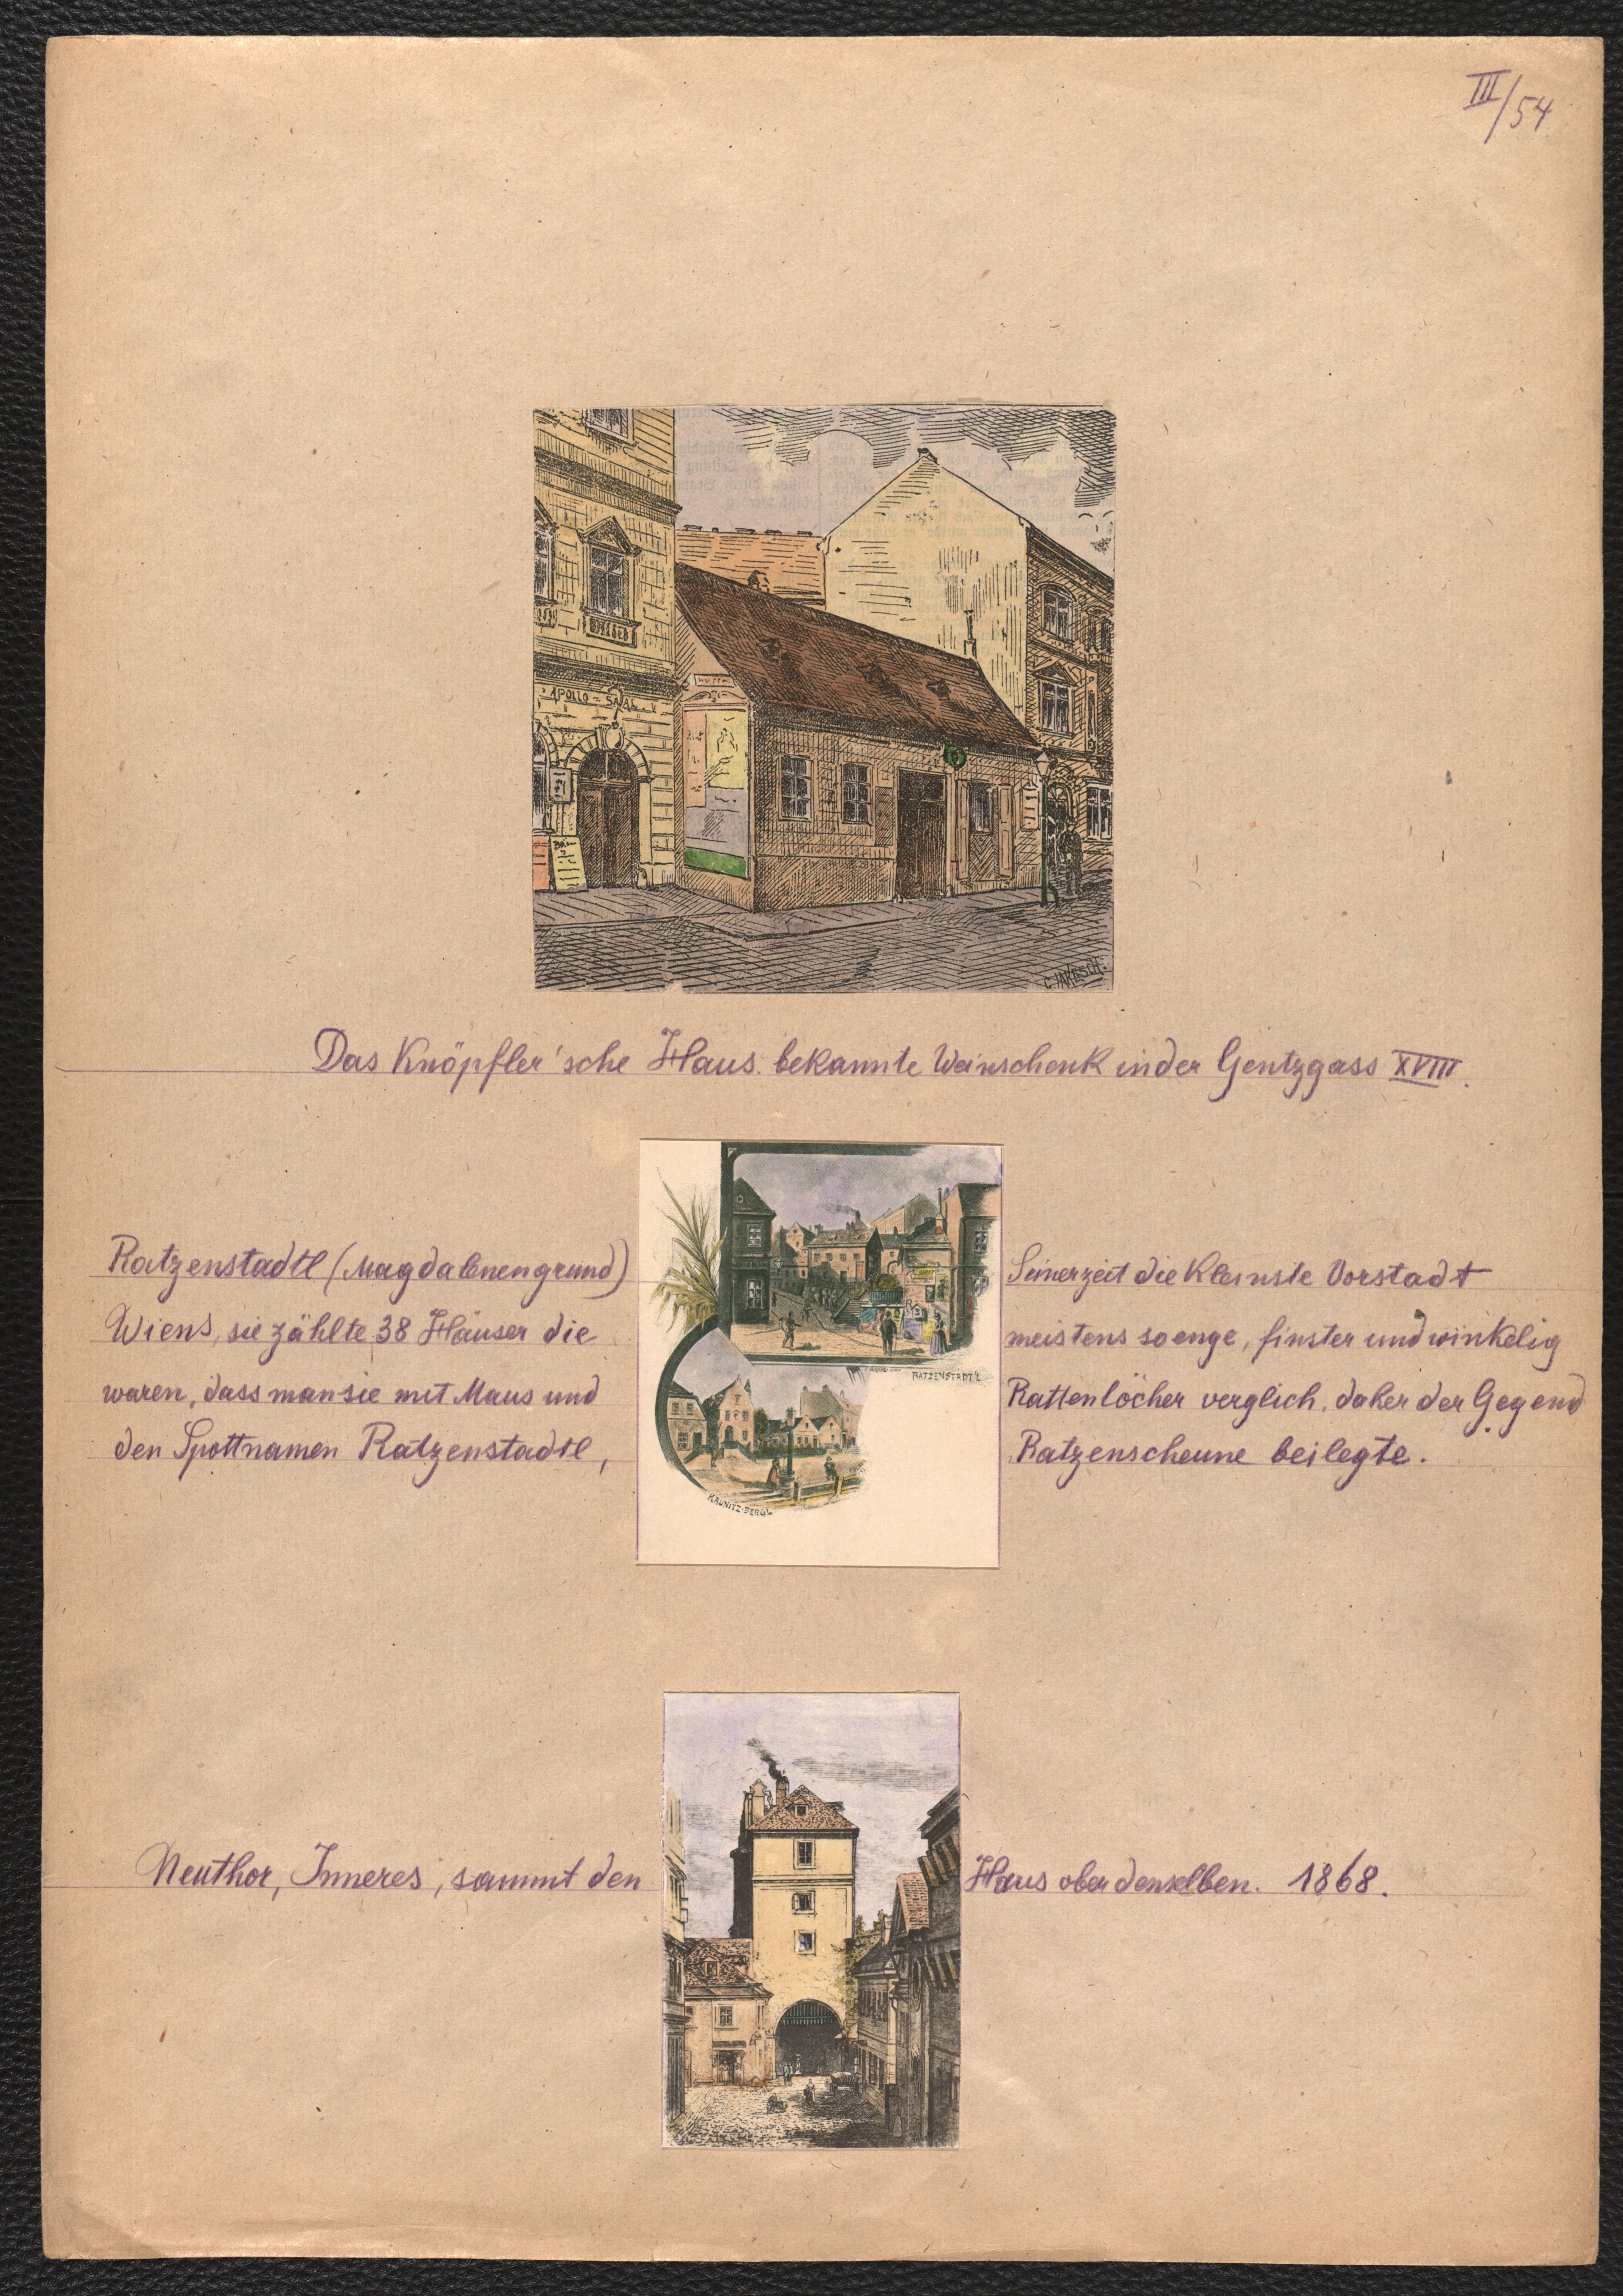 III/54
APOLLO-SAAL
C. JAKESCH.
Das Knöpfler'sche Haus. bekannte Weinschenk in der Gentzgass XVIII.
Ratzenstadtl (Magdalenengrund) Seinerzeit die Kleinste Vorstadt
Wiens, sie zählte 38 Häuser die meistens so enge, finster und winkelig
waren, dass man sie mit Maus und Rattenlöcher verglich, daher der Gegend
den Spottnamen Ratzenstadtl, Ratzenscheune beilegte.
RATZENSTADT'L
KAUNITZ-BERG'L
Neuthor, Inneres, sammt den Haus ober denselben. 1868.